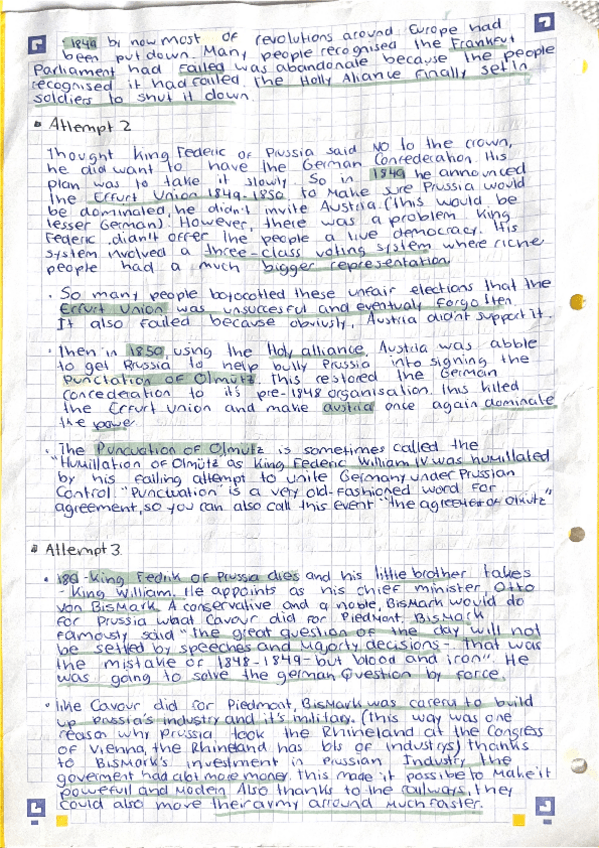 1849 by now most of revolutions around Europe had
been put down. Many people recognised the Frankfurt
Parliament had failed was abandonale because the people
recognised it had failed. the Holly Aliance finally set in
soldiers to shut it down.
Attempt 2
Thought King Federic of Prussia said NO to the crown,
he did want to have the German Confederation. His
plan was to take it slowly. So in 1849 he announced
the Erfurt Union 1849-1850. to Make sure Prussia would
be dominated, he didn't invite Austria. (this would be
lesser German). However, there was a problem King
Federic didn't offer the people a live democracy. His
system involved a three-class voting system where riche
people had a much bigger representation
So many people boycotled these unfair elections that the
Erfurt Union was unsuccesful and eventualy forgotten.
It also failed because obviously, Austria didn't support it.
Then in 1850, using the Holy alliance, Austria was abble
to get Russia to help bully Prussia into signing the
Punctation of Olmütz. this restored the German
concederation to it's pre-1848 organisation. this killed
the Erfurt Union and make austria once again dominate
the power
The Puncuation of Olmütz is sometimes called the
"Humillation of Olmütz as King Federic William IV was humillated
by his failing attempt to unite Germany under Prussian
Control. "Punctuation" is a very old-fashioned word for
agreement, so you can also call this event "the agreement of Olmütz"
Attempt 3
King Fedrik of Prussia dies and his little brother takes
- King William. He appoints as his chief minister, Otto
von BisMark. A conservative and a noble, BisMark would do
for Prussia what Cavour did for Piedmont. BisMark
famously said "the great question of the day will not
be settled by speeches and Majorty decisions - that was
the mistake of 1848-1849 - but blood and iron". He
was going to solve the german Question by force.
like Cavour, did for Piedmont, BisMark was careful to build
up russia's industry and it's military. (this way was one
reason why Prussia took the Rhineland at the Congress
of Vienna, the Rhineland has bts of industrys) thanks
to BisMark's investment in Prussian Industry the
goverment had a bit more money. this made it possibe to Make it
powerfull and Modern Also thanks to the railways, they
could also more their army arround Much faster.